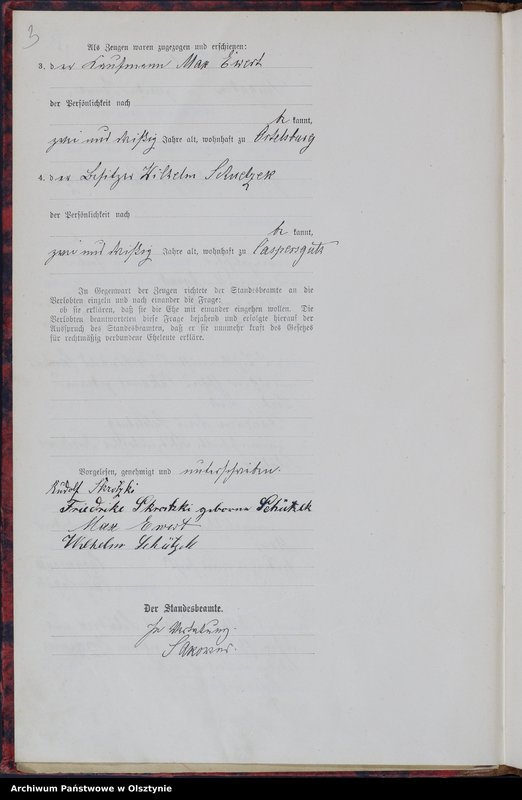 3
Als Zeugen waren zugezogen und erschienen:
3. der Kaufmann Max Ewert
der Persönlichkeit nach
be kannt,
zwei und dreißig Jahre alt, wohnhaft zu Ortelsburg
4. der Besitzer Wilhelm
der Persönlichkeit nach
be kannt,
zwei und dreißig Jahre alt, wohnhaft zu Caspersguth
In Gegenwart der Zeugen richtete der Standesbeamte an die
Verlobten einzeln und nach einander die Frage:
ob sie erklären, daß sie die Ehe mit einander eingehen wollen. Die
Verlobten beantworteten diese Frage bejahend und erfolgte hierauf der
Ausspruch des Standesbeamten, daß er sie nunmehr kraft des Gesetzes
für rechtmäßig verbundene Eheleute erkläre.
Vorgelesen, genehmigt und unterschrieben.
Rudolf Skrotzki
Friedrike Skrotzki geborene
Max Ewert
Wilhelm
Der Standesbeamte.
In Vertretung.
Archiwum Państwowe w Olsztynie